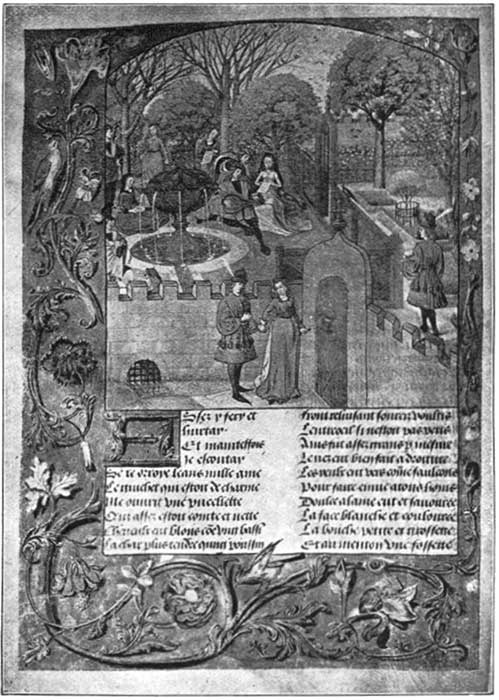 Assez y fery et
hurtay
Et maintesfois
je escoutay
Se je orroye leans nulle ame
Le guichet qui estoit de charme
Me ouvrit une pucellette
Qui assez estoit cointe et nette
Cheveulx eut blons come ung bassin
La char plus tendre qung poussin
Front reluisant sourcis voultis
Lentroeil si nestoit pas petis
Ains fut assez grans p mesure
Le nez eut bien fait a droiture
Les yeulx eut vers come faulcons
Pour faire envie a tous homs
Doulce alaine eut et savouree
La face blanche et coulouree
La bouche petite et grossette
Et au menton une fossette